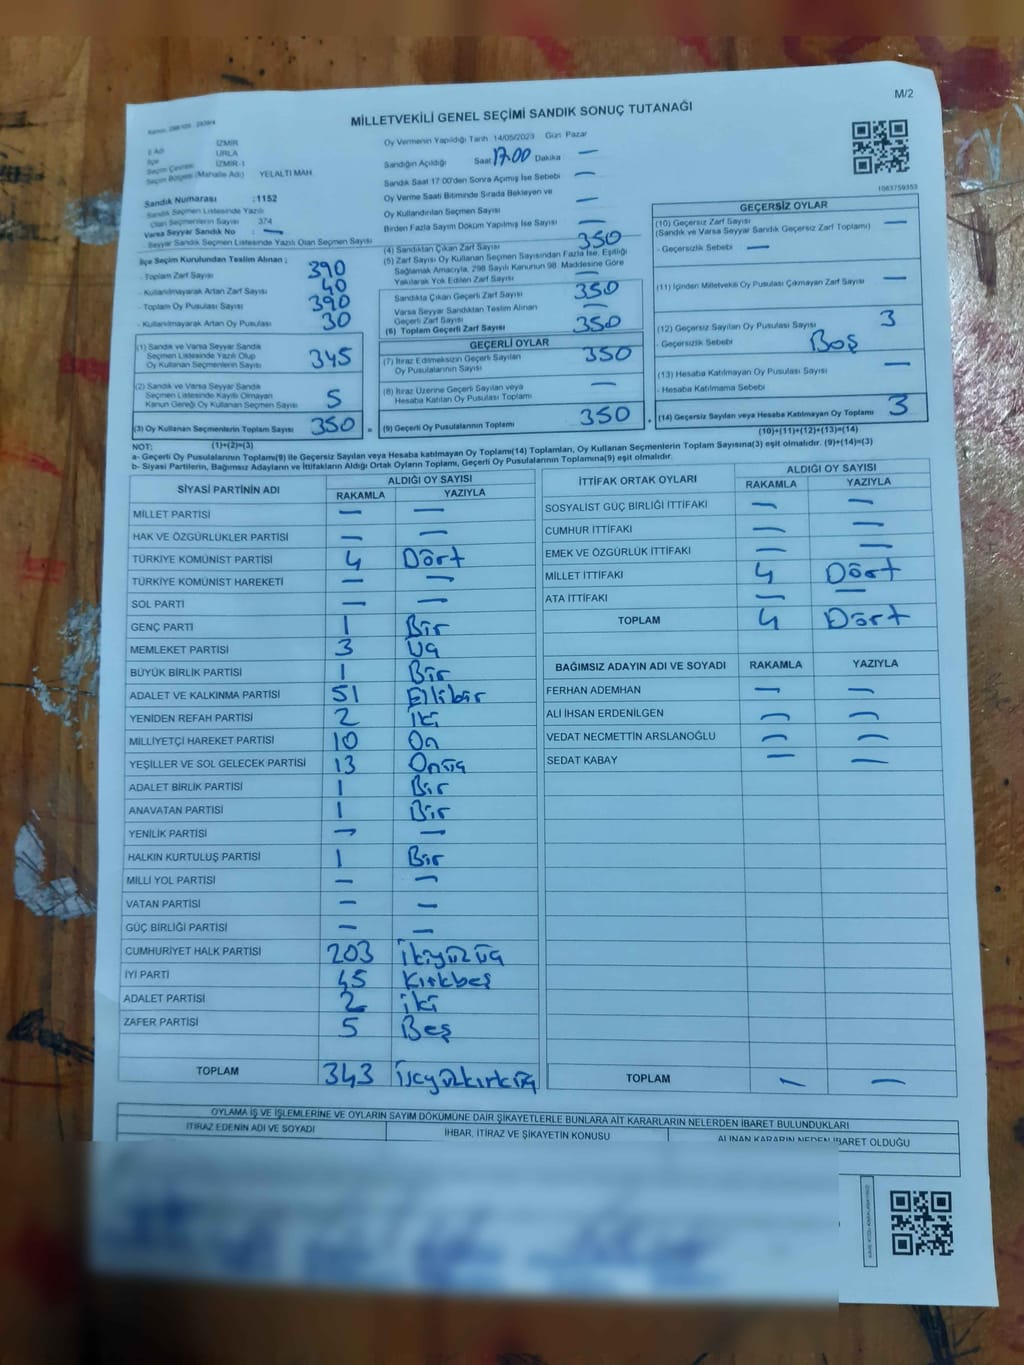 M/2
MİLLETVEKİLİ GENEL SEÇİMİ SANDIK SONUÇ TUTANAĞI
İl Adı İZMİR
İlçe URLA
Seçim Çevresi İZMİR-1
Seçim Bölgesi (Mahalle Adı) YELALTI MAH.
Sandık Numarası :1152
Sandık Seçmen Listesinde Yazılı
Olan Seçmenlerin Sayısı 374
Varsa Seyyar Sandık No : —
Seyyar Sandık Seçmen Listesinde Yazılı Olan Seçmen Sayısı
Oy Vermenin Yapıldığı Tarih 14/05/2023 Gün Pazar
Sandığın Açıldığı Saat 17.00 Dakika —
Sandık Saat 17:00'den Sonra Açımış İse Sebebi —
Oy Verme Saati Bitiminde Sırada Bekleyen ve
Oy Kullandırılan Seçmen Sayısı —
Birden Fazla Sayım Döküm Yapılmış İse Sayısı —
1063759353
İlçe Seçim Kurulundan Teslim Alınan ;
- Toplam Zarf Sayısı 390
- Kullanılmayarak Artan Zarf Sayısı 40
- Toplam Oy Pusulası Sayısı 390
- Kullanılmayarak Artan Oy Pusulası 30
(1) Sandık ve Varsa Seyyar Sandık
Seçmen Listesinde Yazılı Olup
Oy Kullanan Seçmenlerin Sayısı 345
(2) Sandık ve Varsa Seyyar Sandık
Seçmen Listesinde Kayıtlı Olmayan
Kanun Gereği Oy Kullanan Seçmen Sayısı 5
(3) Oy Kullanan Seçmenlerin Toplam Sayısı 350
(4) Sandıktan Çıkan Zarf Sayısı 350
(5) Zarf Sayısı Oy Kullanan Seçmen Sayısından Fazla İse, Eşitliği
Sağlamak Amacıyla, 298 Sayılı Kanunun 98. Maddesine Göre
Yakılarak Yok Edilen Zarf Sayısı —
Sandıkta Çıkan Geçerli Zarf Sayısı 350
Varsa Seyyar Sandıktan Teslim Alınan
Geçerli Zarf Sayısı —
(6) Toplam Geçerli Zarf Sayısı 350
GEÇERLİ OYLAR
(7) İtiraz Edilmeksizin Geçerli Sayılan
Oy Pusulalarının Sayısı 350
(8) İtiraz Üzerine Geçerli Sayılan veya
Hesaba Katılan Oy Pusulası Toplamı —
(9) Geçerli Oy Pusulalarının Toplamı 350
GEÇERSİZ OYLAR
(10) Geçersiz Zarf Sayısı —
(Sandık ve Varsa Seyyar Sandık Geçersiz Zarf Toplamı)
- Geçersizlik Sebebi —
(11) İçinden Milletvekili Oy Pusulası Çıkmayan Zarf Sayısı —
(12) Geçersiz Sayılan Oy Pusulası Sayısı 3
- Geçersizlik Sebebi Boş
(13) Hesaba Katılmayan Oy Pusulası Sayısı —
- Hesaba Katılmama Sebebi
(14) Geçersiz Sayılan veya Hesaba Katılmayan Oy Toplamı 3
NOT: (1)+(2)=(3) (10)+(11)+(12)+(13)=(14)
a- Geçerli Oy Pusulalarının Toplamı(9) ile Geçersiz Sayılan veya Hesaba katılmayan Oy Toplamı(14) Toplamları, Oy Kullanan Seçmenlerin Toplam Sayısına(3) eşit olmalıdır. (9)+(14)=(3)
b- Siyasi Partilerin, Bağımsız Adayların ve İttifakların Aldığı Ortak Oyların Toplamı, Geçerli Oy Pusulalarının Toplamına(9) eşit olmalıdır.
SİYASİ PARTİNİN ADI ALDIĞI OY SAYISI
RAKAMLA YAZIYLA
MİLLET PARTİSİ — —
HAK VE ÖZGÜRLÜKLER PARTİSİ — —
TÜRKİYE KOMÜNİST PARTİSİ 4 Dört
TÜRKİYE KOMÜNİST HAREKETİ — —
SOL PARTİ — —
GENÇ PARTİ 1 Bir
MEMLEKET PARTİSİ 3 Üç
BÜYÜK BİRLİK PARTİSİ 1 Bir
ADALET VE KALKINMA PARTİSİ 51 Ellibir
YENİDEN REFAH PARTİSİ 2 İki
MİLLİYETÇİ HAREKET PARTİSİ 10 On
YEŞİLLER VE SOL GELECEK PARTİSİ 13 Onüç
ADALET BİRLİK PARTİSİ 1 Bir
ANAVATAN PARTİSİ 1 Bir
YENİLİK PARTİSİ — —
HALKIN KURTULUŞ PARTİSİ 1 Bir
MİLLİ YOL PARTİSİ — —
VATAN PARTİSİ — —
GÜÇ BİRLİĞİ PARTİSİ — —
CUMHURİYET HALK PARTİSİ 203 İkiyüzüç
İYİ PARTİ 45 Kırkbeş
ADALET PARTİSİ 2 iki
ZAFER PARTİSİ 5 Beş
TOPLAM 343 üçyüzkırküç
İTTİFAK ORTAK OYLARI ALDIĞI OY SAYISI
RAKAMLA YAZIYLA
SOSYALİST GÜÇ BİRLİĞİ İTTİFAKI — —
CUMHUR İTTİFAKI — —
EMEK VE ÖZGÜRLÜK İTTİFAKI — —
MİLLET İTTİFAKI 4 Dört
ATA İTTİFAKI — —
TOPLAM 4 Dört
BAĞIMSIZ ADAYIN ADI VE SOYADI RAKAMLA YAZIYLA
FERHAN ADEMHAN — —
ALİ İHSAN ERDENİLGEN — —
VEDAT NECMETTİN ARSLANOĞLU — —
SEDAT KABAY — —
TOPLAM — —
OYLAMA İŞ VE İŞLEMLERİNE VE OYLARIN SAYIM DÖKÜMÜNE DAİR ŞİKAYETLERLE BUNLARA AİT KARARLARIN NELERDEN İBARET BULUNDUKLARI
İTİRAZ EDENİN ADI VE SOYADI İHBAR, İTİRAZ VE ŞİKAYETİN KONUSU ALINAN KARARIN NEDEN İBARET OLDUĞU